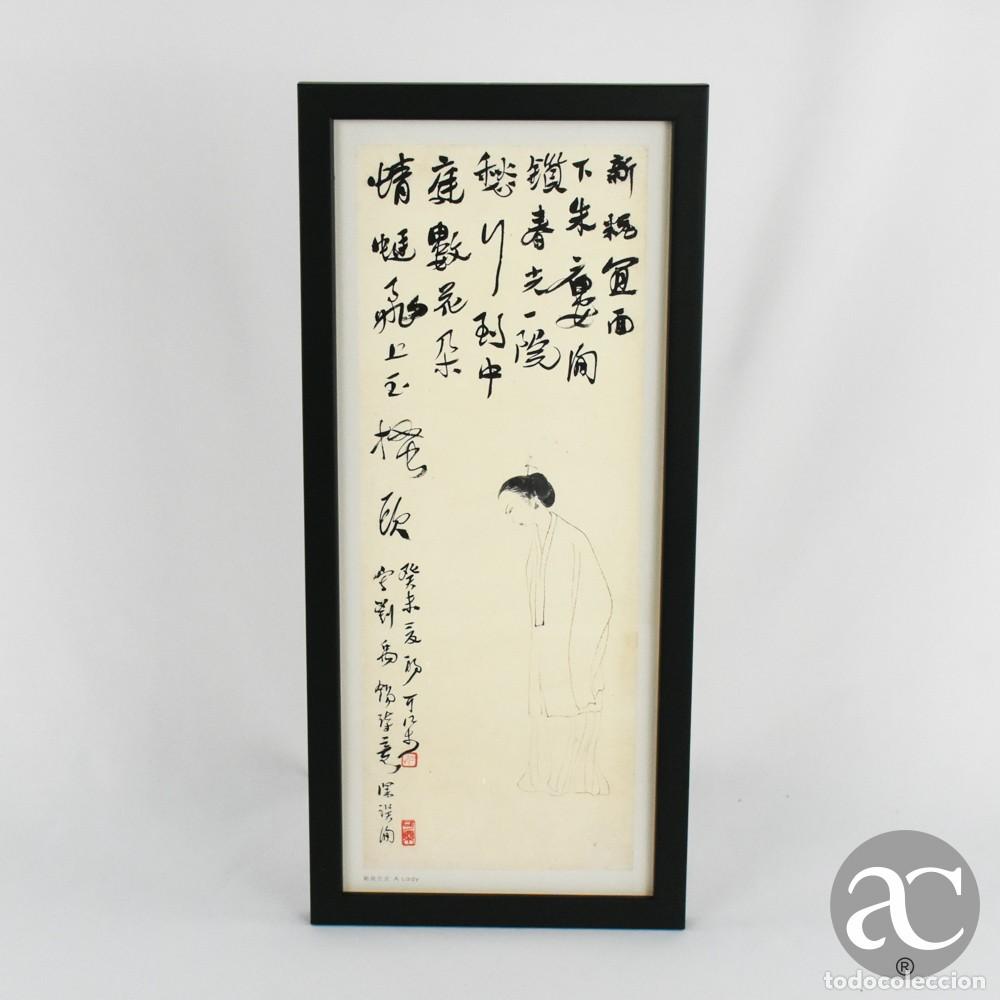 新粧宜面
下朱樓洵
鎖春光一院
愁行到中
庭數花朵
蜻蜓飛上玉搔頭
癸未夏初可染
寫劉禹錫詩意 深誤洵
A Lady
ac
®
todocoleccion